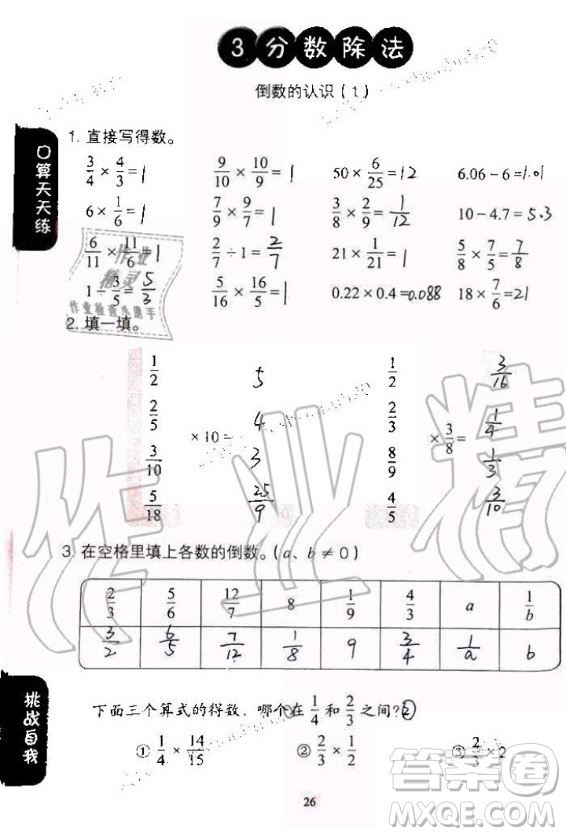 3 分数除法
倒数的认识(1)
口算天天练
1. 直接写得数。
3/4 × 4/3 = 1  9/10 × 10/9 = 1  50 × 6/25 = 12  6.06 - 6 = 1.01
6 × 1/6 = 1  7/9 × 9/7 = 1  3/8 × 2/9 = 1/12  10 - 4.7 = 5.3
6/11 × 11/6 = 1  2/7 ÷ 1 = 2/7  21 × 1/21 = 1  5/8 × 7/5 = 7/8
1 ÷ 3/5 = 5/3  5/16 × 16/5 = 1  0.22 × 0.4 = 0.088  18 × 7/6 = 21
作业
精灵
作业检查小助手
2. 填一填。
1/2  5  1/2  3/16
2/5  4  2/3  1/4
× 10 =  × 3/8 =
3/10  3  8/9  1/3
5/18  25/9  4/5  3/10
作业精
3. 在空格里填上各数的倒数。(a、b ≠ 0)
2/3  5/6  12/7  8  1/9  4/3  a  1/b
3/2  6/5  7/12  1/8  9  3/4  1/a  b
挑战自我
下面三个算式的得数,哪个在 1/4 和 2/3 之间?②
① 1/4 × 14/15  ② 2/3 × 1/2  ③ 2/3 × 2
26
答案圈
MXQE.COM